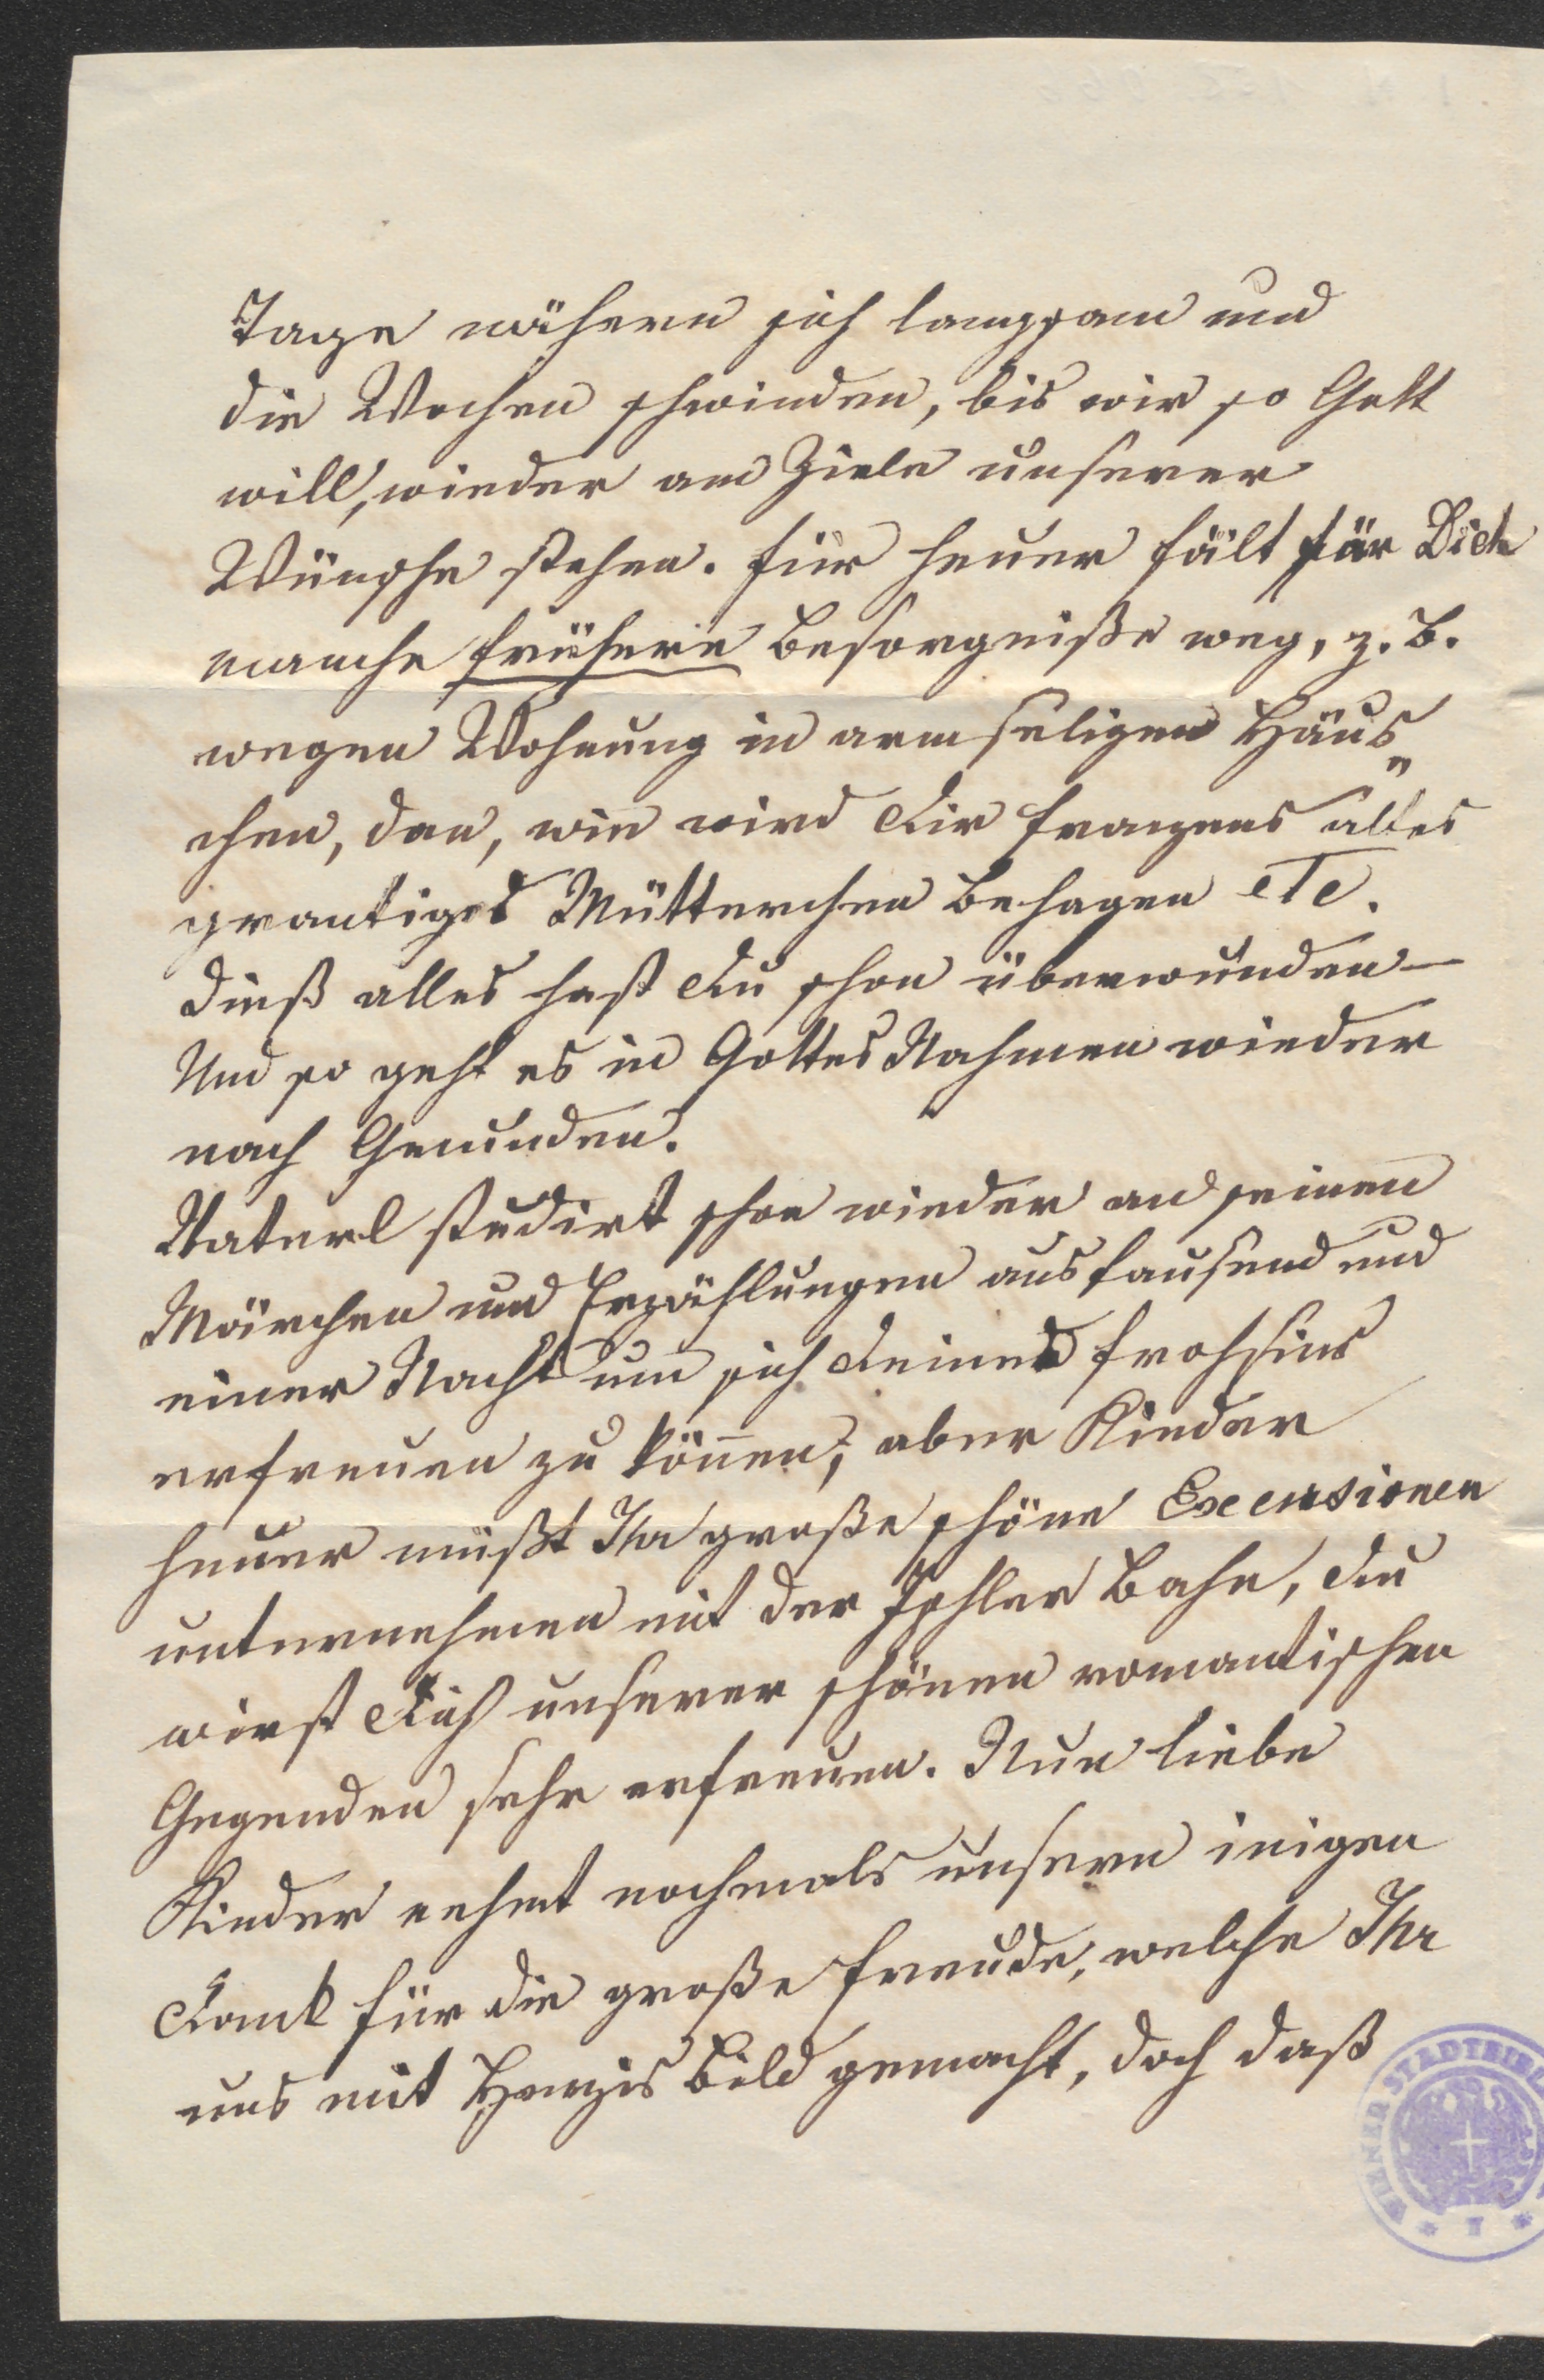 Tage nähern sich langsam und
die Wochen schwinden, bis wir so Gott
will, wieder am Ziele unserer
Wünsche stehen. Für heuer fält für Dich
manche frühere Besorgniße weg, z. B.
wegen Wohnung in armseligen Häus„
chen, dan, wie wird Dir Franzens altes
grantiges Mütterchen behagen etc.
dieß alles hast Du schon überwunden –
Und so geht es in Gottes Nahmen wieder
nach Gmunden.
Vaterl studirt schon wieder an seinen
Märchen und Erzählungen aus tausend und
einer Nacht um sich Deines Frohsins
erfreuen zu können, aber Kinder
heuer müßt Ihr große schöne Excursionen
unternehmen mit der Ischler Bahn, Du
wirst Dich unserer schönen romantischen
Gegenden sehr erfreuen. Nun liebe
Kinder nehmt nochmals unsern inigen
Dank für die große Freude, welche Ihr
uns mit Bild gemacht, doch daß
WIENER STADTBIBL